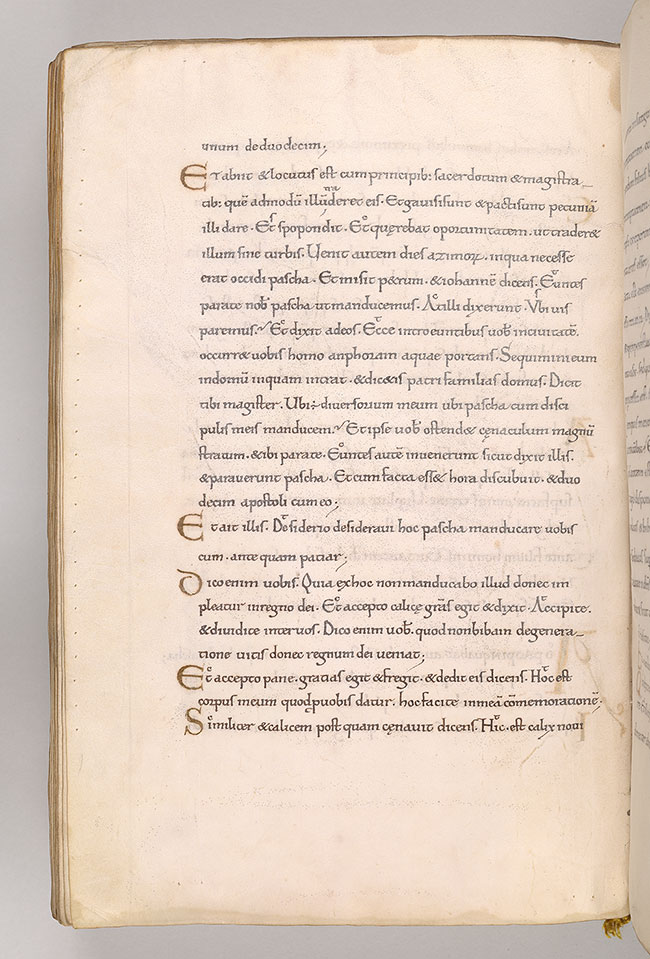 unum deduodecim;
Et abiit &locutus est cum principib: sacerdotum &magistra_
tib: quē admodū illū traderet eis. Et gavisi sunt &pactisunt pecuniā
illi dare. Et spopondit. Et querebat oportunitatem. ut trader&
illum sine turbis. Venit autem dies azimoꝝ. inqua necesse
erat occidi pascha. Et misit p&rum. &iohannē dicens. Euntes
parate nob pascha ut manducemus. At illi dixerunt. Ubi vis
paremus. Et dixit adeos. Ecce introeuntibus vob incivitatē.
occurr& vobis homo anphoram aquae portans. Sequimini eum
indomū inquam intrat. &dic&is patrifamilias domus. Dicit
tibi magister. Ubi ÷ diversorium meum ubi pascha cum disci
pulis meis manducem. Et ipse vob ostend& cęnaculum magnū
stratum. &ibi parate. Euntes autē invenerunt sicut dixit illis.
&paraverunt pascha. Et cum facta ess& hora discubuit. &duo
decim apostoli cum eo;
Et ait illis. Desiderio desideravi hoc pascha manducare vobis
cum. ante quam patiar;
Dico enim vobis. Quia ex hoc non manducabo illud donec im
pleatur inregno dei. Et accepto calice grās egit &dixit. Accipite.
&dividite intervos. Dico enim vob. quod nonbibam degenera_
tione vitis donec regnum dei veniat;
Et accepto pane. gratias egit &fregit. &dedit eis dicens. Hoc est
corpus meum quod pvobis datur. hoc facite inmeā cōmemorationē.
Similiter &calicem post quam cęnavit dicens. Hic. est calix novi